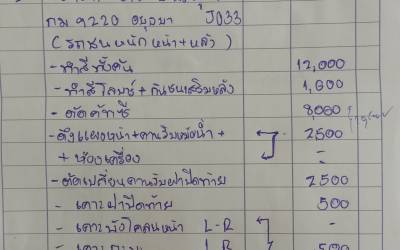 กม 9220 อยุธยา J033
(รถชนหนักหน้า+หลัง)
- ทำสีทั้งคัน 12,000
- ทำสีโลบาร์+กันชนเสริมหลัง 1,600
- ตัดคัทซี 8,000
- ดึงแผงหน้า+คานรับหม้อน้ำ + 2500
+ ห้องเครื่อง -
- ตัดเปลี่ยนคานรับฝาปิดท้าย 2500
- เคาะฝาปิดท้าย 500
- เคาะบังโคลนหน้า L-R -
- เคาะ L R 500